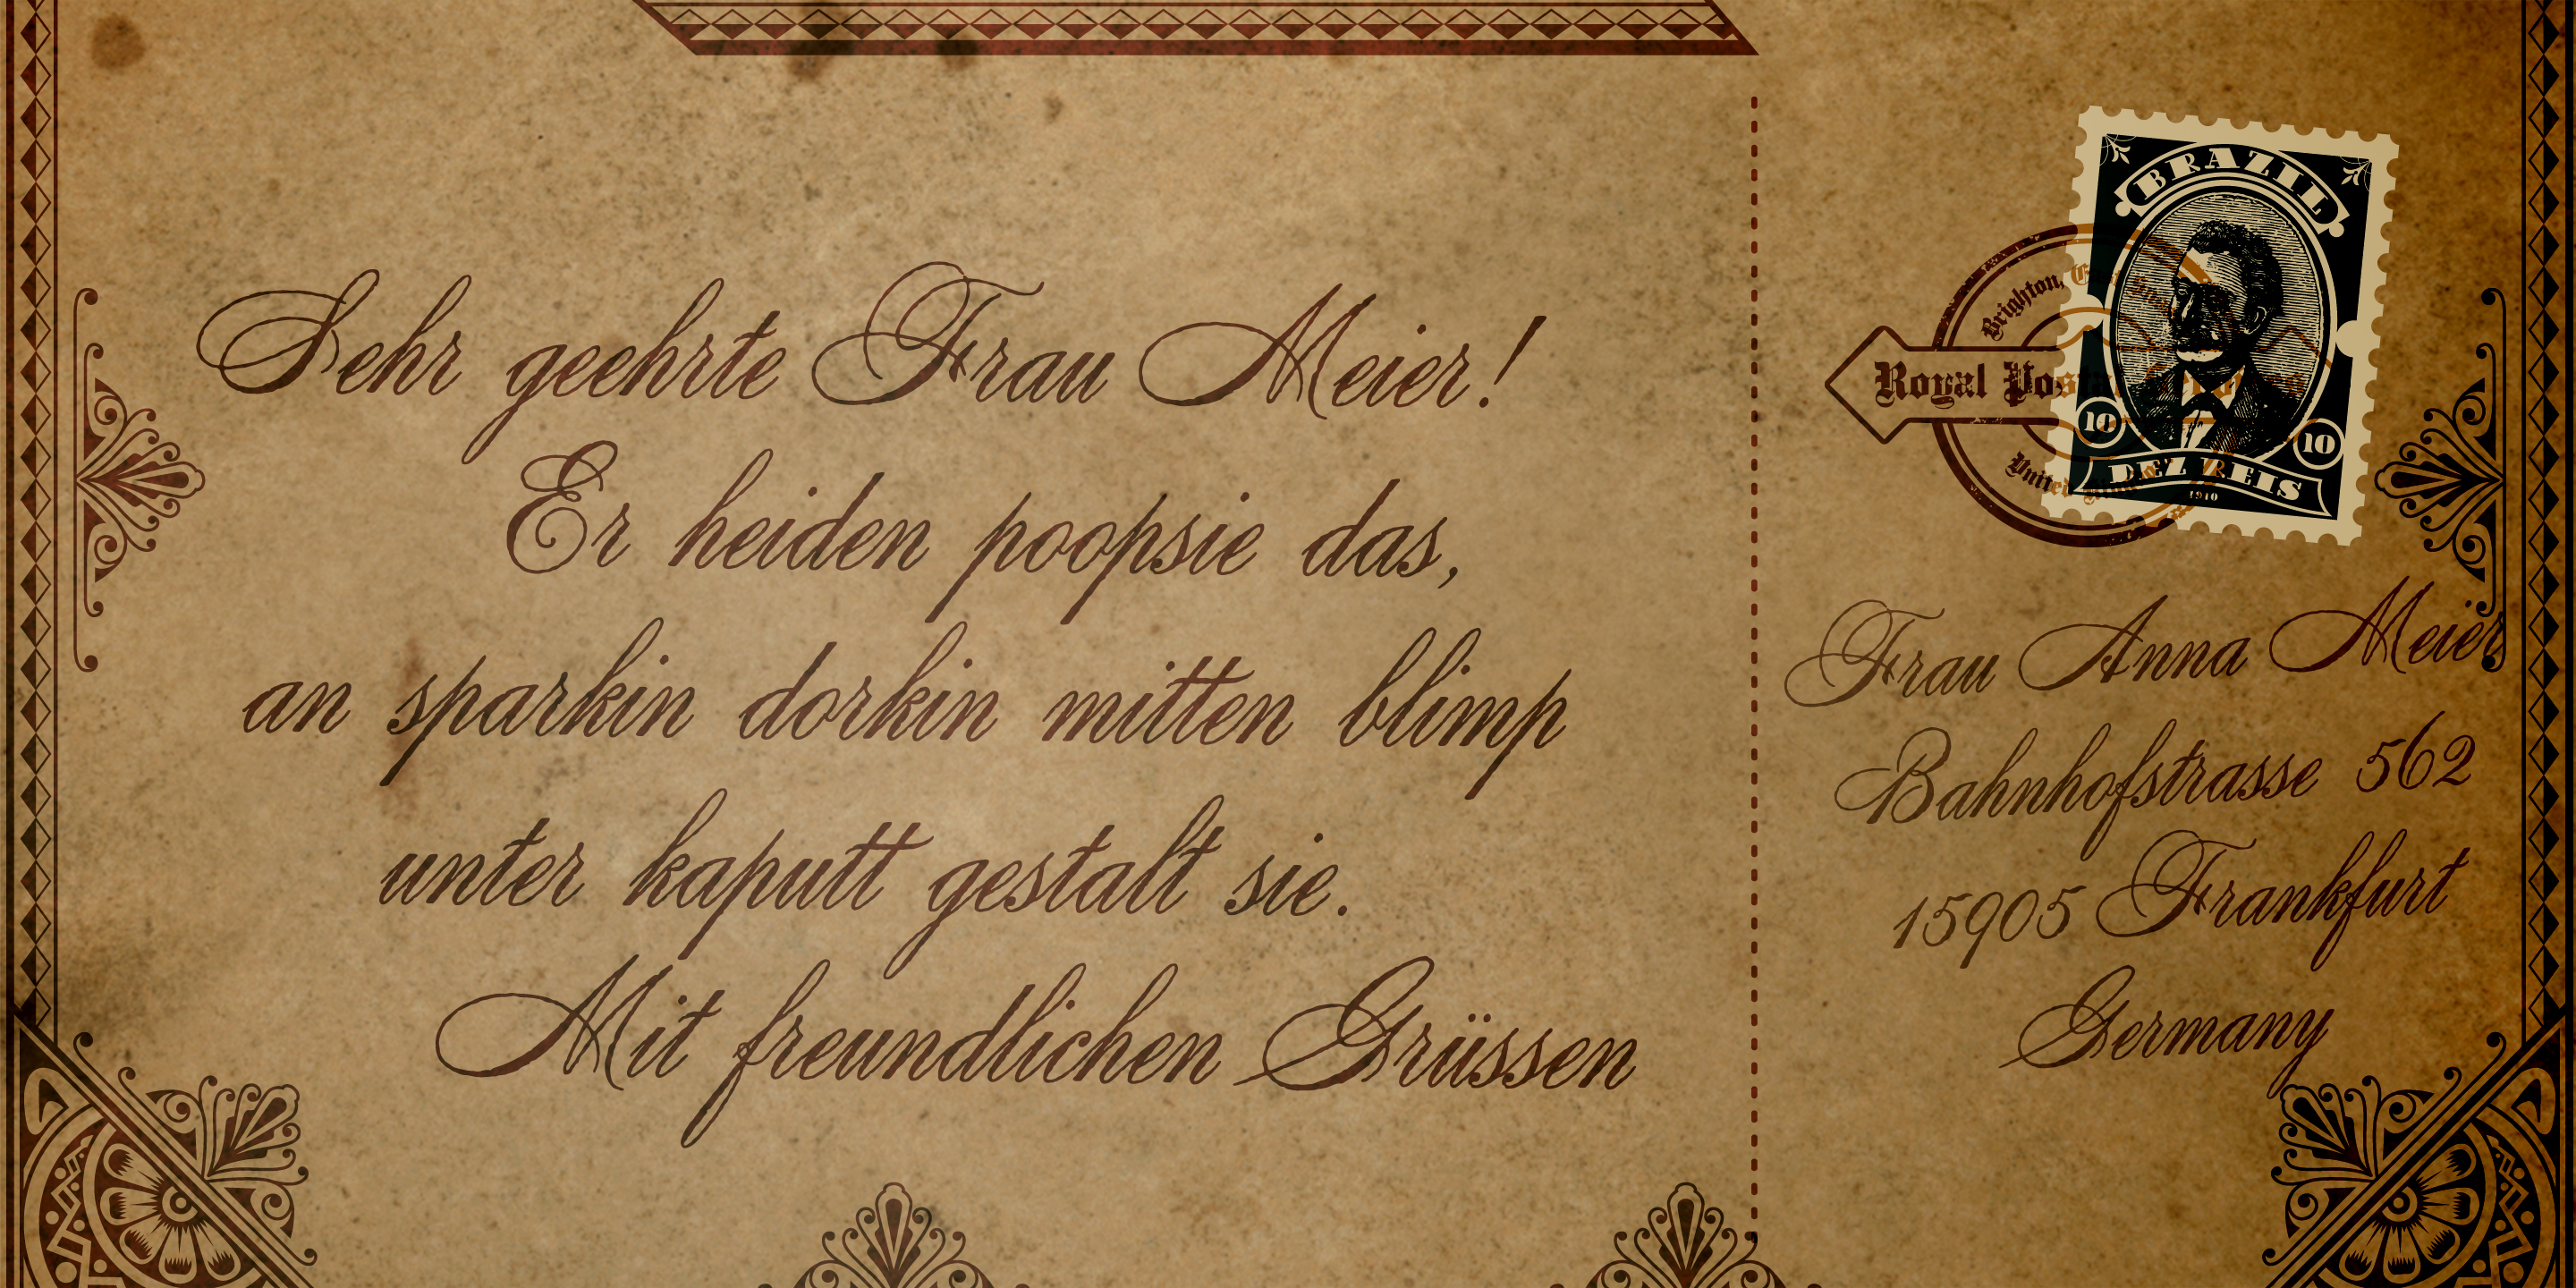 Sehr geehrte Frau Meier!
Er heiden poopsie das,
an sparkin dorkin mitten blimp
unter kaputt gestalt sie.
Mit freundlichen Grüssen
BRAZIL
10 10
DEZ REIS
1910
Brighton,
Royal
United
Frau Anna Meier
Bahnhofstrasse 562
15905 Frankfurt
Germany